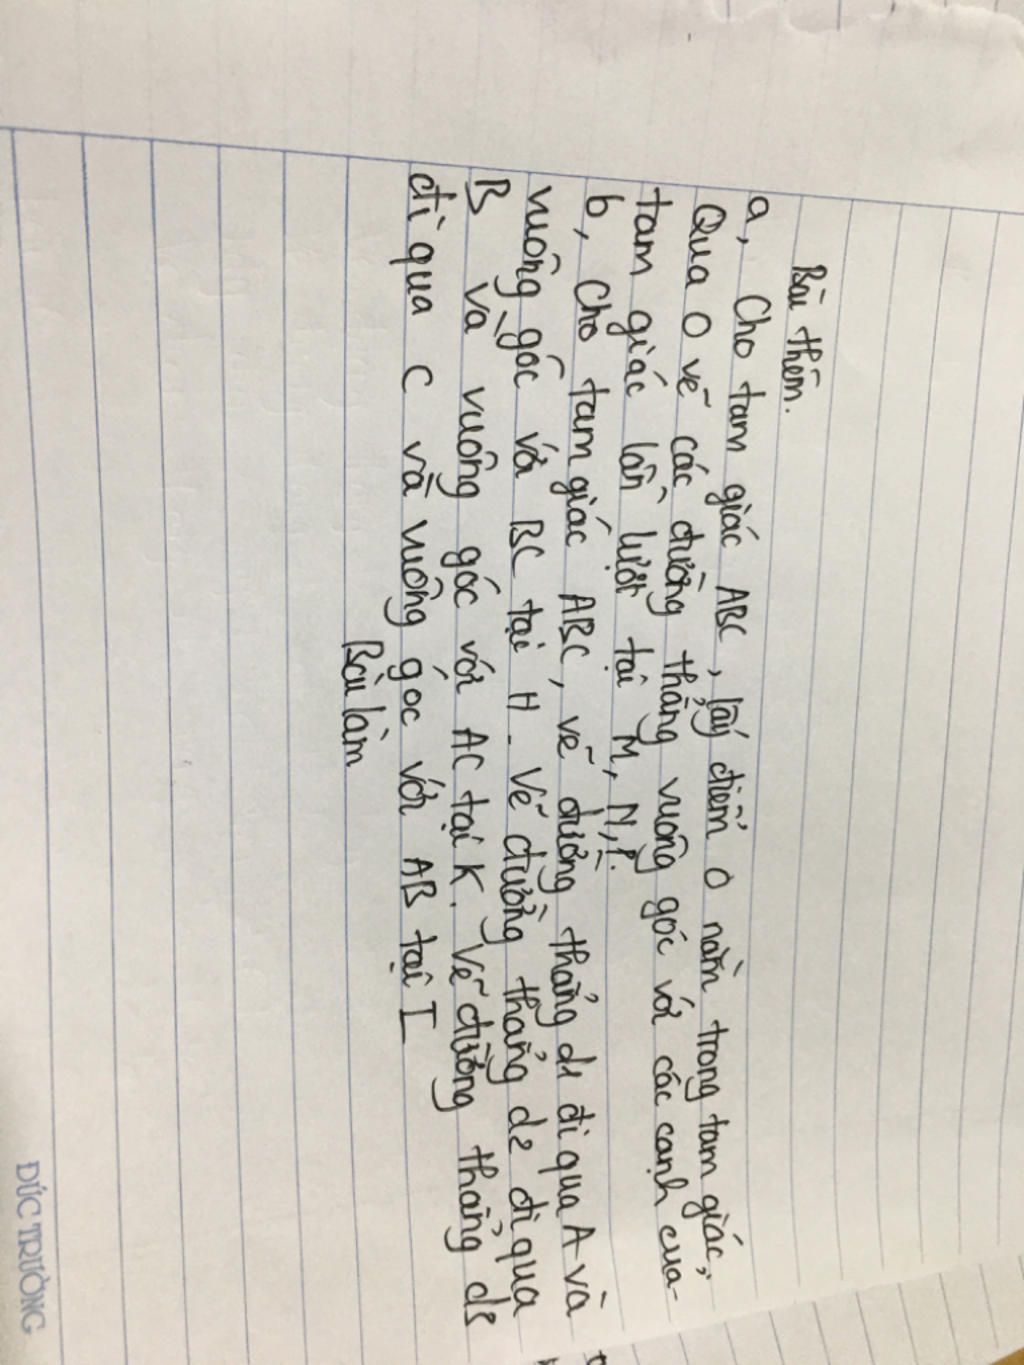 Bài thêm.
a, Cho tam giác ABC, lấy điểm O nằm trong tam giác,
Qua O vẽ các đường thẳng vuông góc với các cạnh của
tam giác lần lượt tại M, N, P.
b, Cho tam giác ABC, vẽ đường thẳng d1 đi qua A và
vuông góc với BC tại H. Vẽ đường thẳng d2 đi qua
B và vuông góc với AC tại K. Vẽ đường thẳng d3
đi qua C và vuông góc với AB tại I
Bài làm
ĐỨC TRƯỜNG